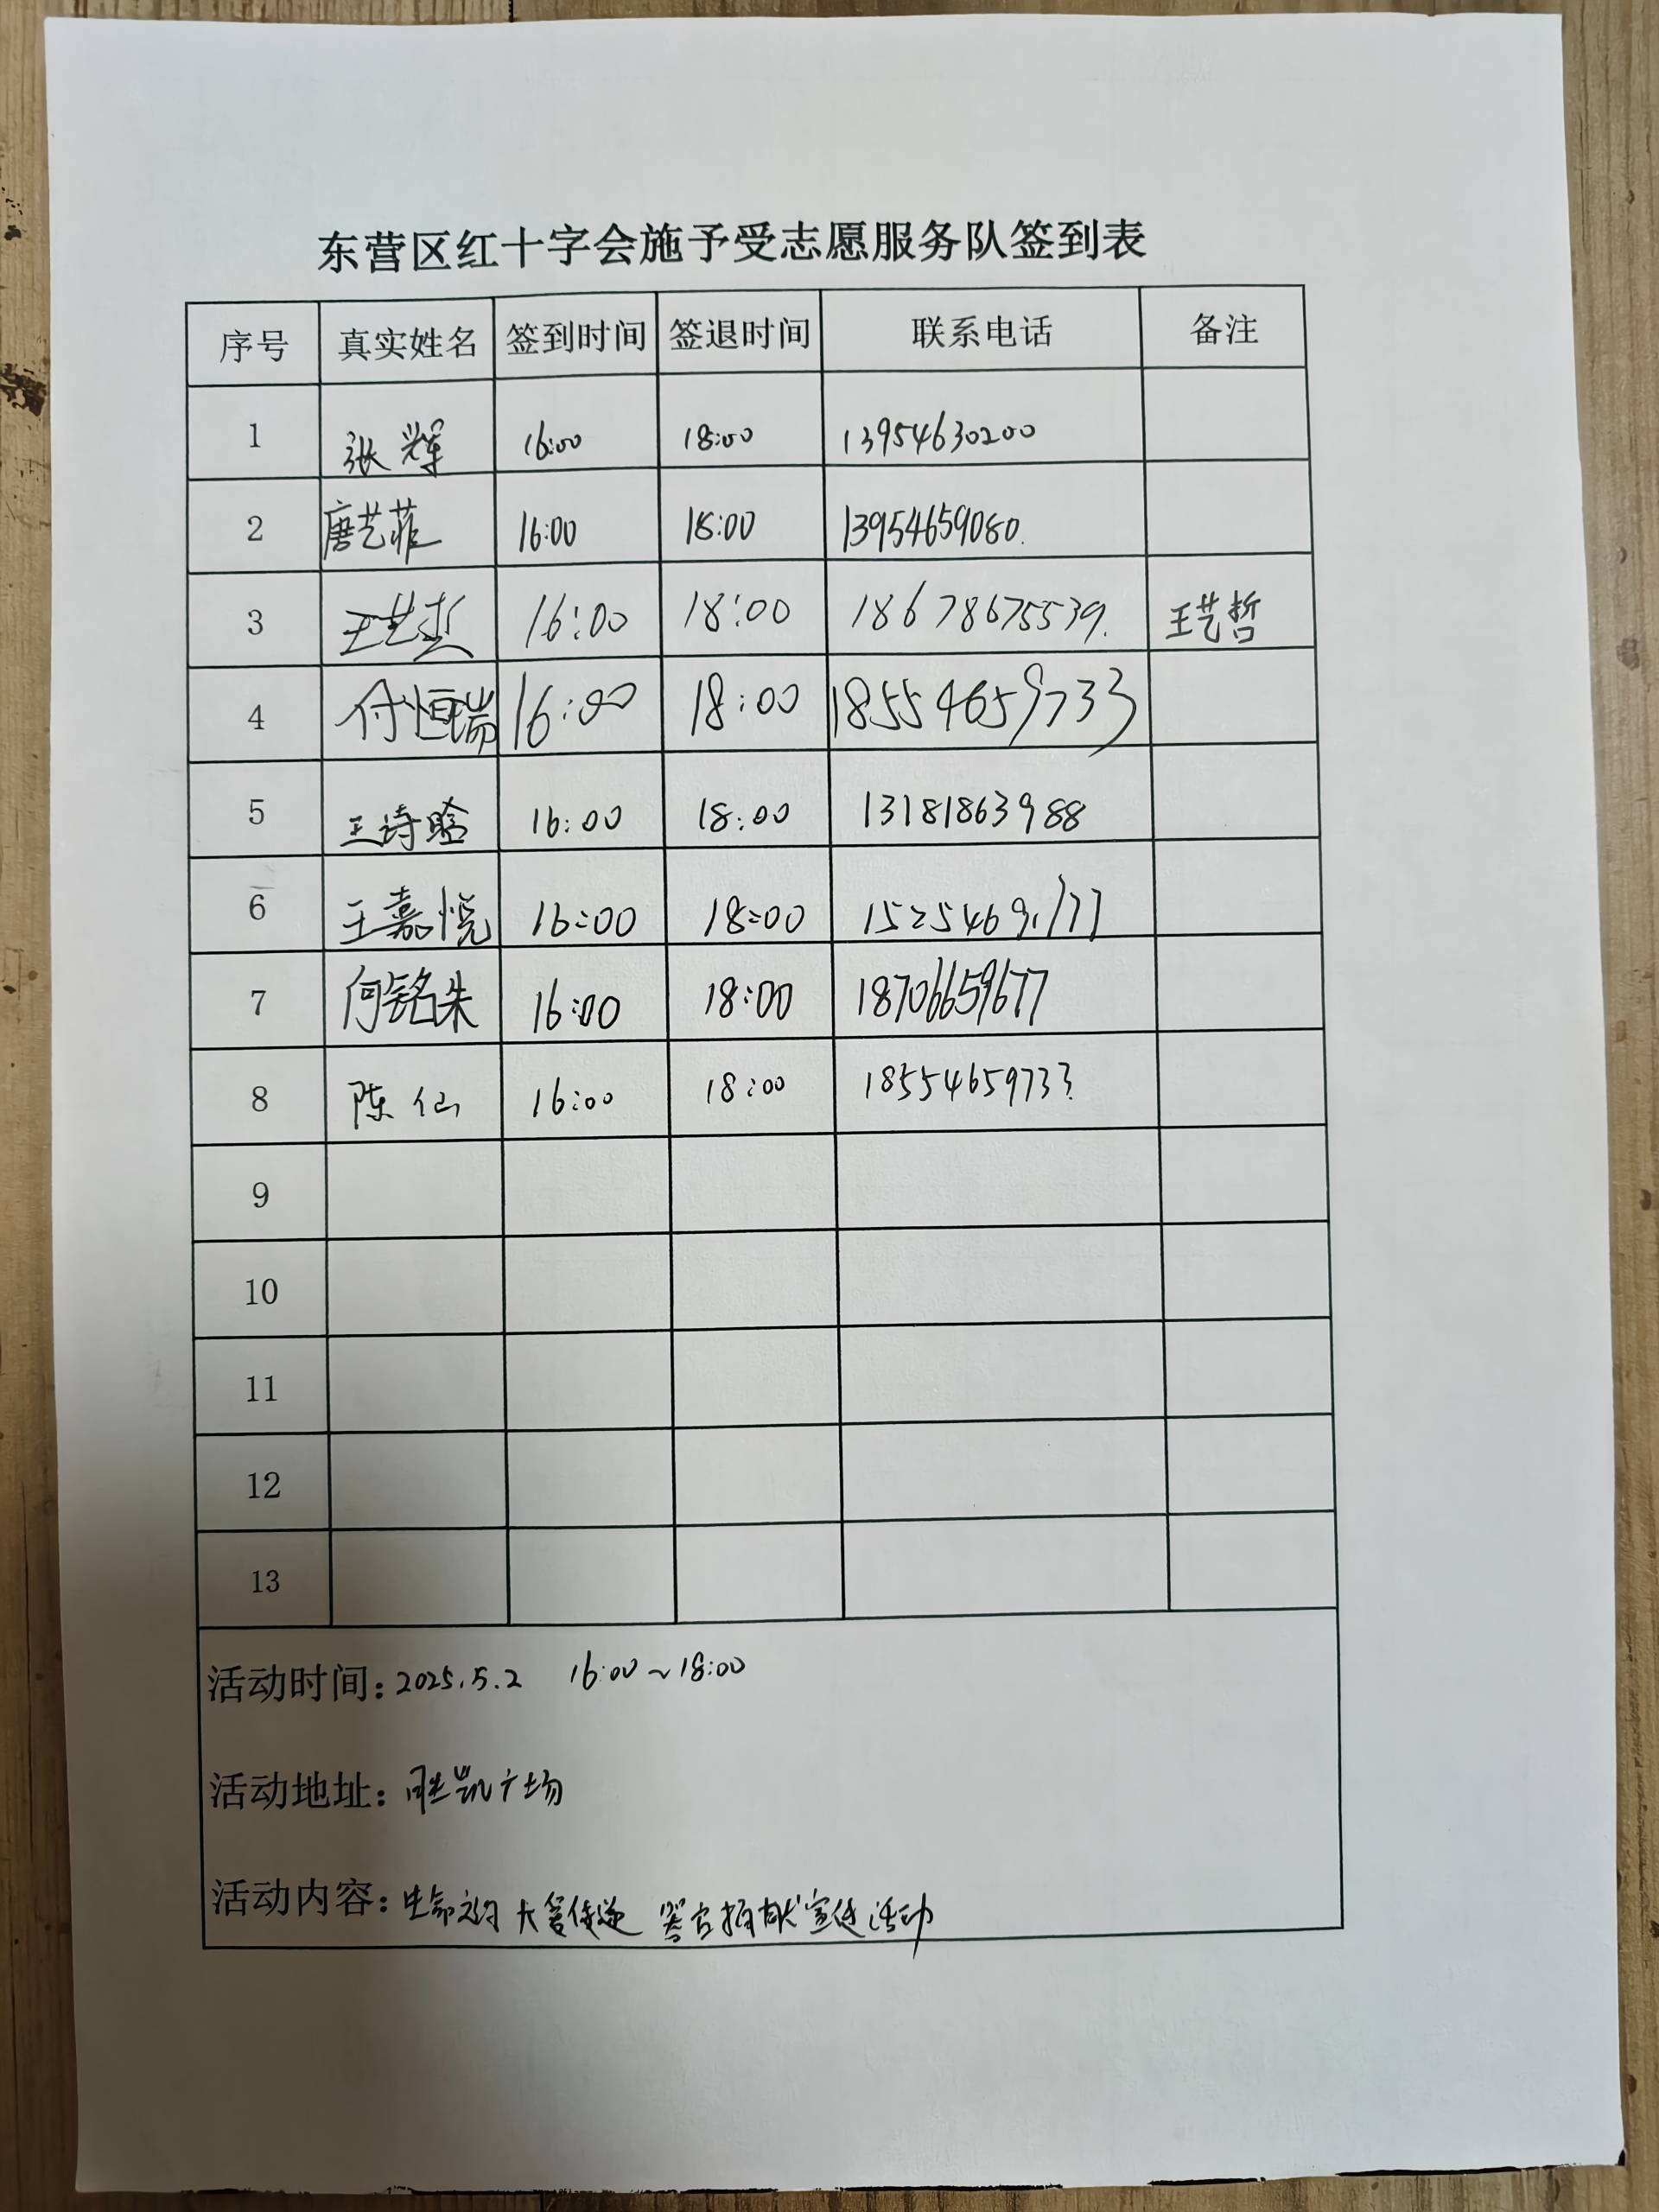 东营区红十字会施予受志愿服务队签到表
序号 真实姓名 签到时间 签退时间 联系电话 备注
1 张辉 16:00 18:00 13954630200
2 唐艺菲 16:00 18:00 13954659080.
3 王艺哲 16:00 18:00 18678675539. 王艺哲
4 付恒瑞 16:00 18:00 18554659733
5 王诗晗 16:00 18:00 13181863988
6 王嘉悦 16:00 18:00
7 何铭朱 16:00 18:00 18706659677
8 陈仙 16:00 18:00 18554659733
9
10
11
12
13
活动时间:2025.5.2 16:00~18:00
活动地址:胜凯广场
活动内容:生命之约 大爱传递 器官捐献宣传活动